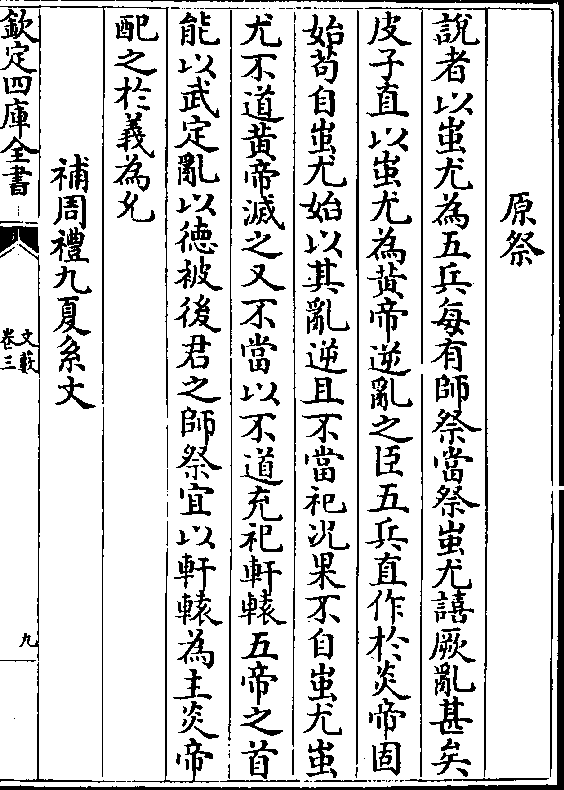 原祭
說者以蚩尤為五兵每有師祭當祭蚩尤譆厥亂甚矣
皮子直以蚩尤為黃帝逆亂之臣五兵直作於炎帝固
始茍自蚩尤始以其亂逆且不當祀況果不自蚩尤蚩
尤不道黃帝滅之又不當以不道充祀軒轅五帝之首
能以武定亂以德被後君之師祭宜以軒轅為主炎帝
配之於義為允
補周禮九夏系文
欽定四庫全書
文藪
卷三
九